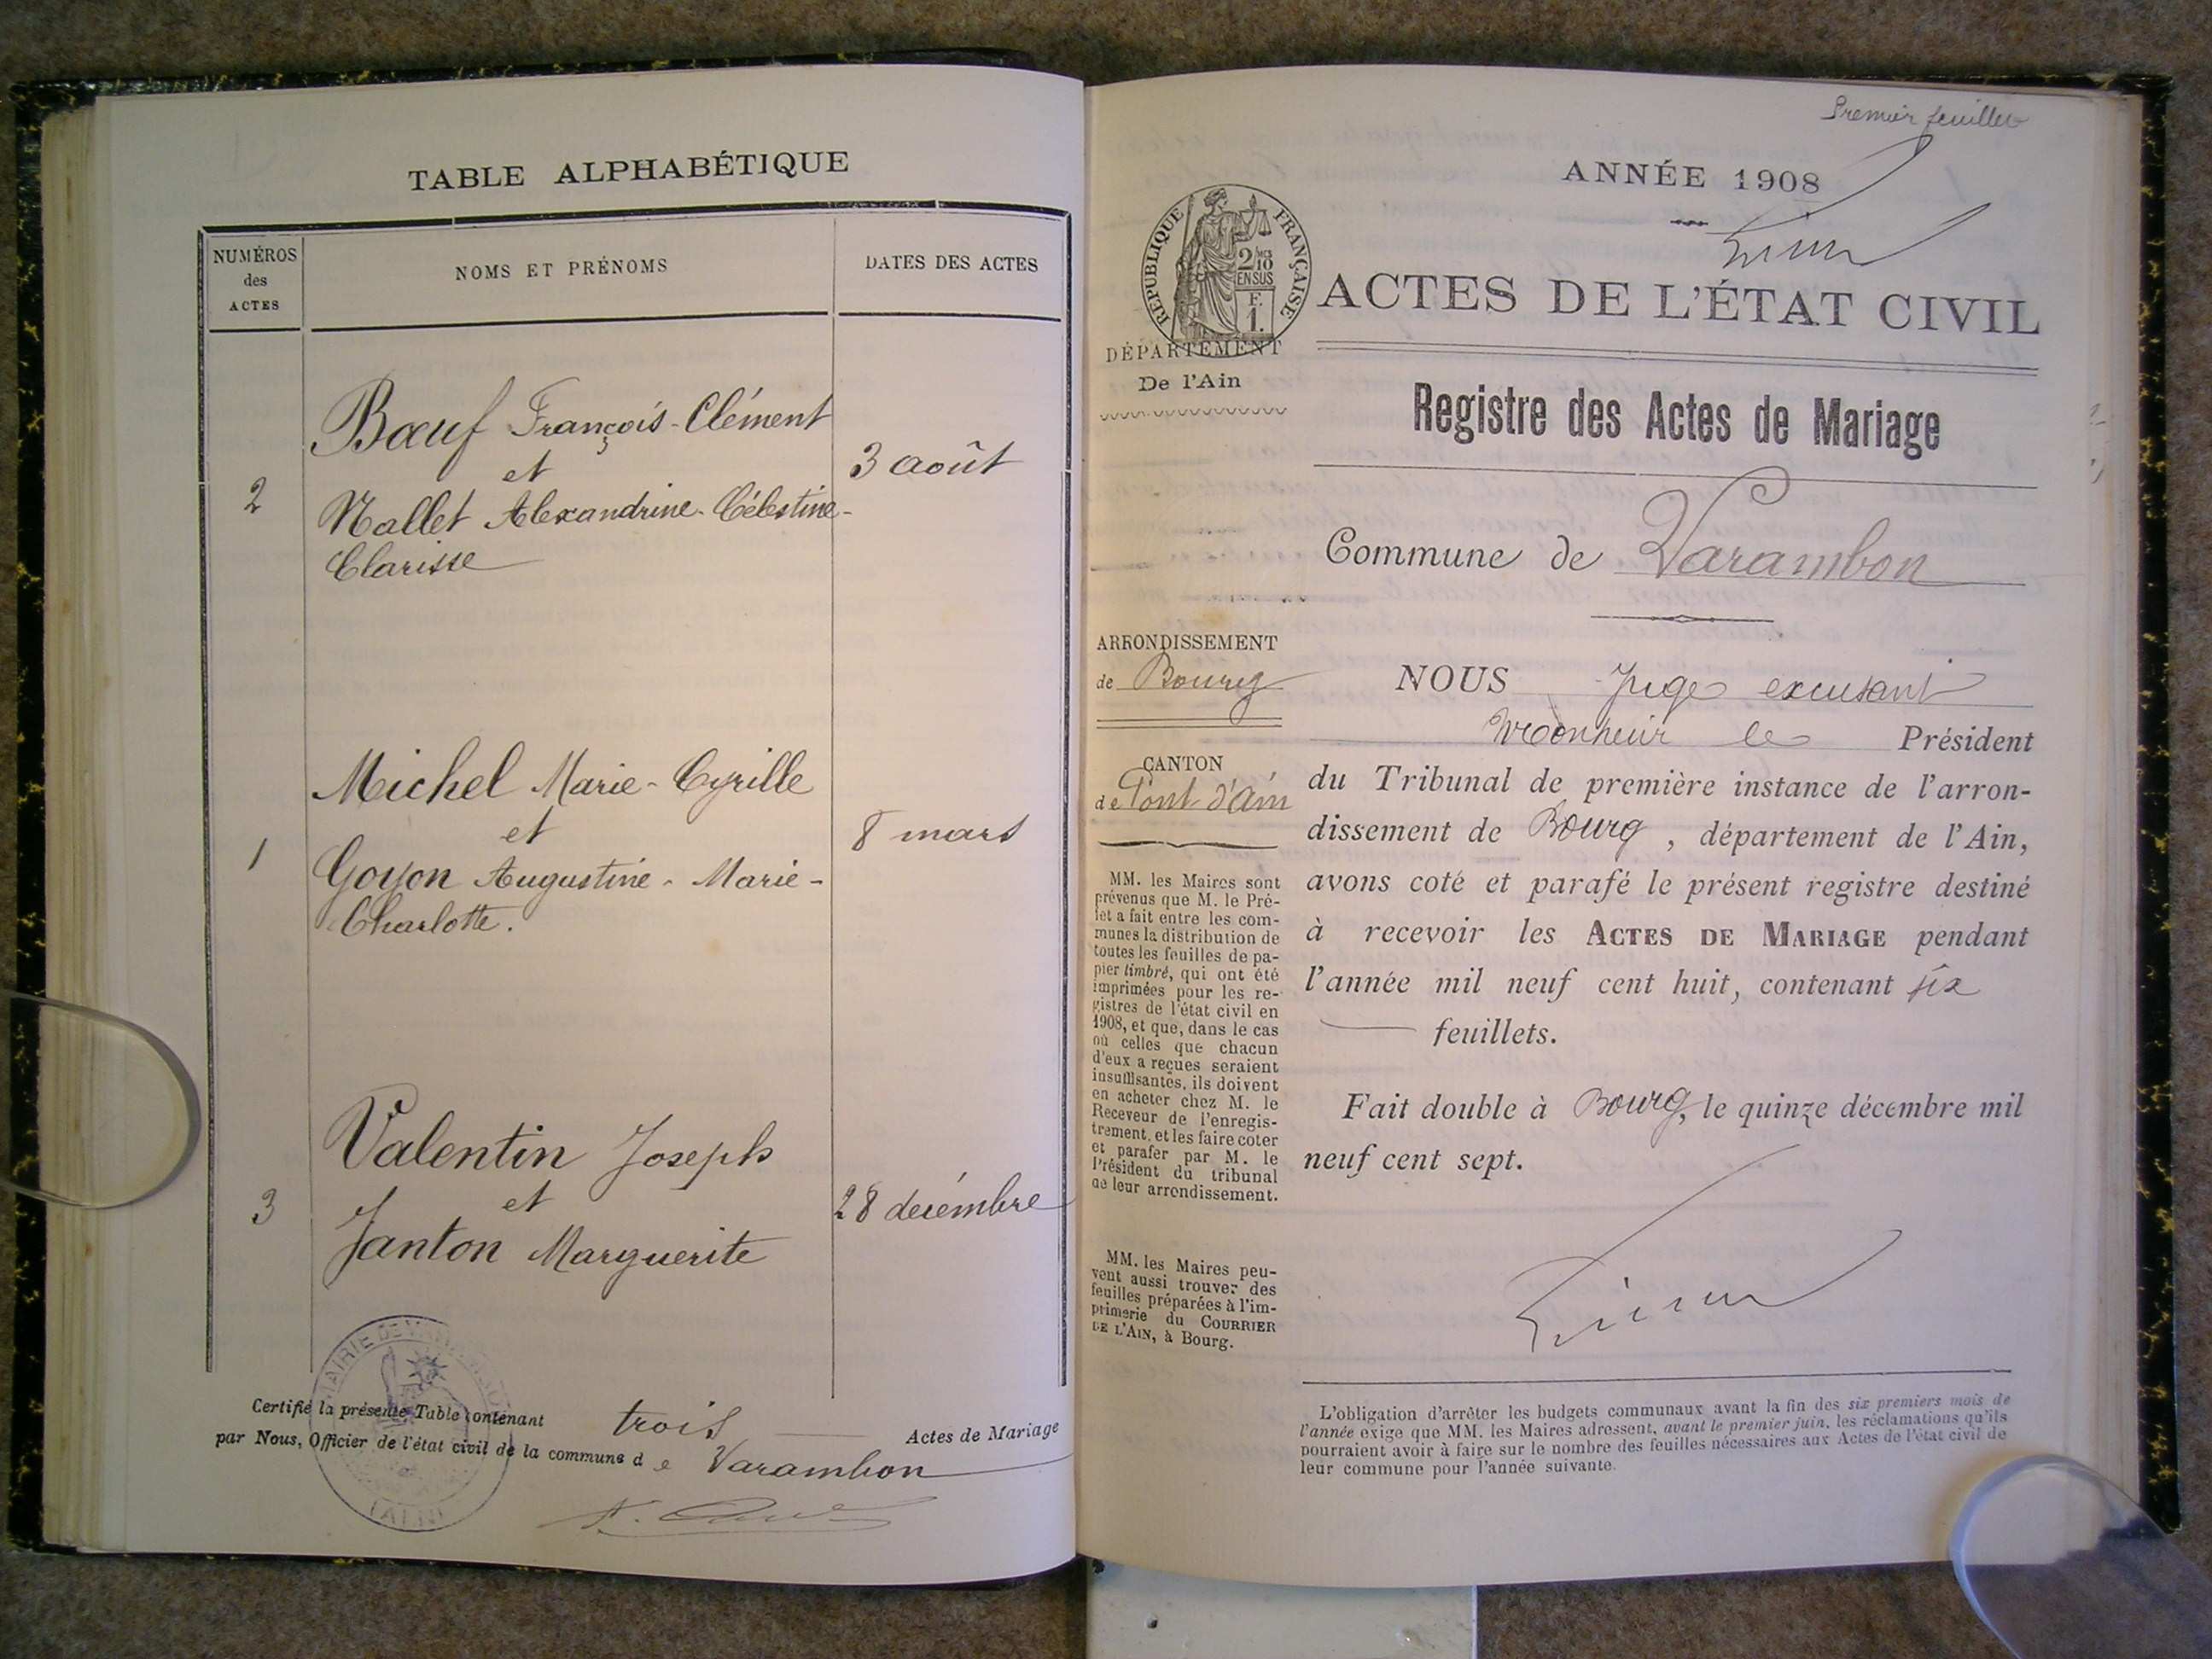 TABLE ALPHABÉTIQUE
NUMÉROS
des
ACTES
NOMS ET PRÉNOMS
DATES DES ACTES
Bœuf François-Clément
et
2
3 août
Nallet Alexandrine-Célestine-
Clarisse
Michel Marie-Cyrille
et
1
8 mars
Goyon Augustine-Marie-
Charlotte.
Valentin Joseph
et
3
28 décembre
Janton Marguerite
Certifié la présente Table contenant trois Actes de Mariage
par Nous, Officier de l'état civil de la commune de Varambon
MAIRIE DE
(AIN)
Premier feuillet
ANNÉE 1908
RÉPUBLIQUE FRANÇAISE
2/10
EN SUS
F.
1.
ACTES DE L'ÉTAT CIVIL
DÉPARTEMENT
De l'Ain
Registre des Actes de Mariage
Commune de Varambon
ARRONDISSEMENT
de Bourg
CANTON
de Pont d'Ain
MM. les Maires sont
prévenus que M. le Pré-
fet a fait entre les com-
munes la distribution de
toutes les feuilles de pa-
pier timbré, qui ont été
imprimées pour les re-
gistres de l'état civil en
1908, et que, dans le cas
où celles que chacun
d'eux a reçues seraient
insuffisantes, ils doivent
en acheter chez M. le
Receveur de l'enregis-
trement, et les faire coter
et parafer par M. le
Président du tribunal
de leur arrondissement.
MM. les Maires peu-
vent aussi trouver des
feuilles préparées à l'im-
primerie du COURRIER
DE L'AIN, à Bourg.
NOUS Juge excusant
Monsieur le Président
du Tribunal de première instance de l'arron-
dissement de Bourg, département de l'Ain,
avons coté et parafé le présent registre destiné
à recevoir les ACTES DE MARIAGE pendant
l'année mil neuf cent huit, contenant six
feuillets.
Fait double à Bourg, le quinze décembre mil
neuf cent sept.
L'obligation d'arrêter les budgets communaux avant la fin des six premiers mois de
l'année exige que MM. les Maires adressent, avant le premier juin, les réclamations qu'ils
pourraient avoir à faire sur le nombre des feuilles nécessaires aux Actes de l'état civil de
leur commune pour l'année suivante.